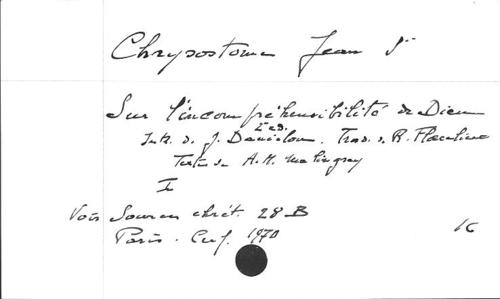 Chrysostome Jean St
Sur l'incompréhensibilité de Dieu
2e ed.
Intr. de J. Daniélou. Trad. de R. Flacelière
Texte de A.M. Malingrey
I
Voir Sources chrét. 28 B
Paris. Cerf. 1970
16